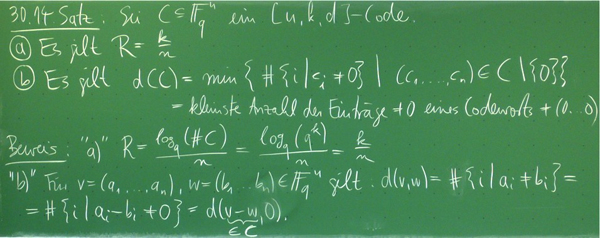 30.14 Satz: Sei C ⊆ 𝔽_q^n ein [n,k,d]-Code.
ⓐ Es gilt R = k/n
ⓑ Es gilt d(C) = min { #{i | c_i ≠ 0} | (c_1,...,c_n) ∈ C \ {0}}
= kleinste Anzahl der Einträge ≠ 0 eines Codeworts ≠ (0...0)
Beweis: "a)" R = log_q(#C)/n = log_q(q^k)/n = k/n
"b)" Für v = (a_1,...,a_n), w = (b_1...b_n) ∈ 𝔽_q^n gilt. d(v,w) = #{i | a_i ≠ b_i} =
= #{i | a_i - b_i ≠ 0} = d(v-w, 0).
∈ C